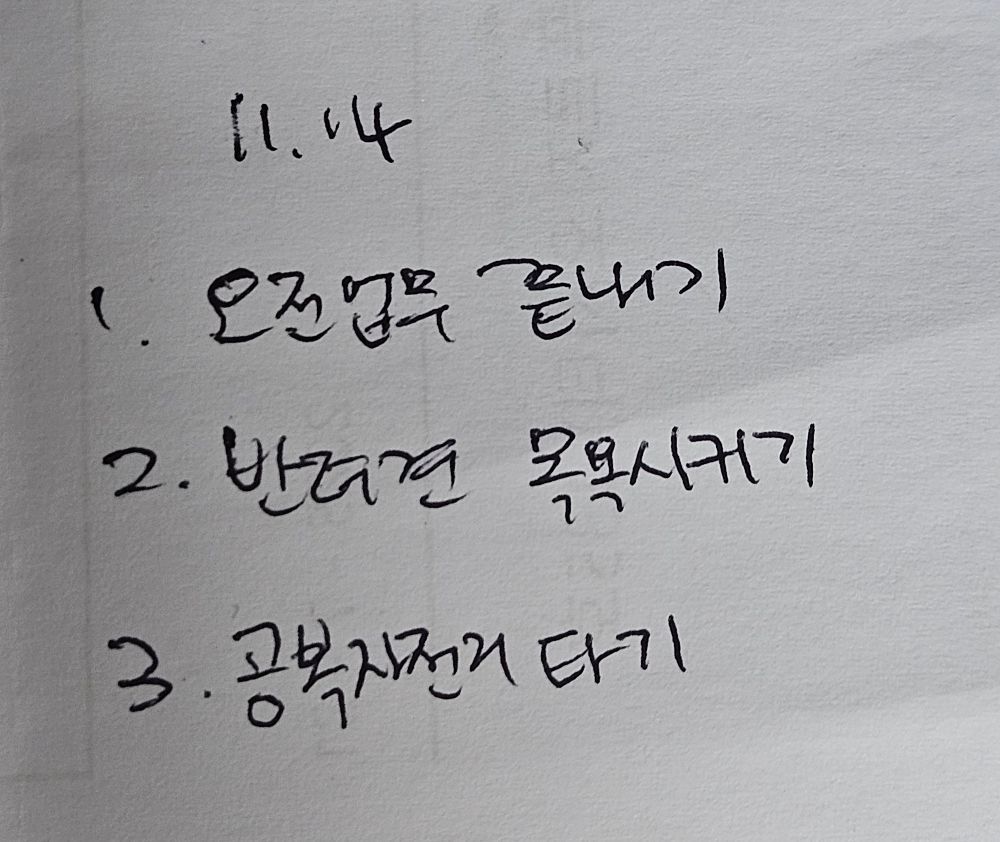 11.14
1. 오전업무 끝내기
2. 반려견 목욕시키기
3. 공복자전거 타기